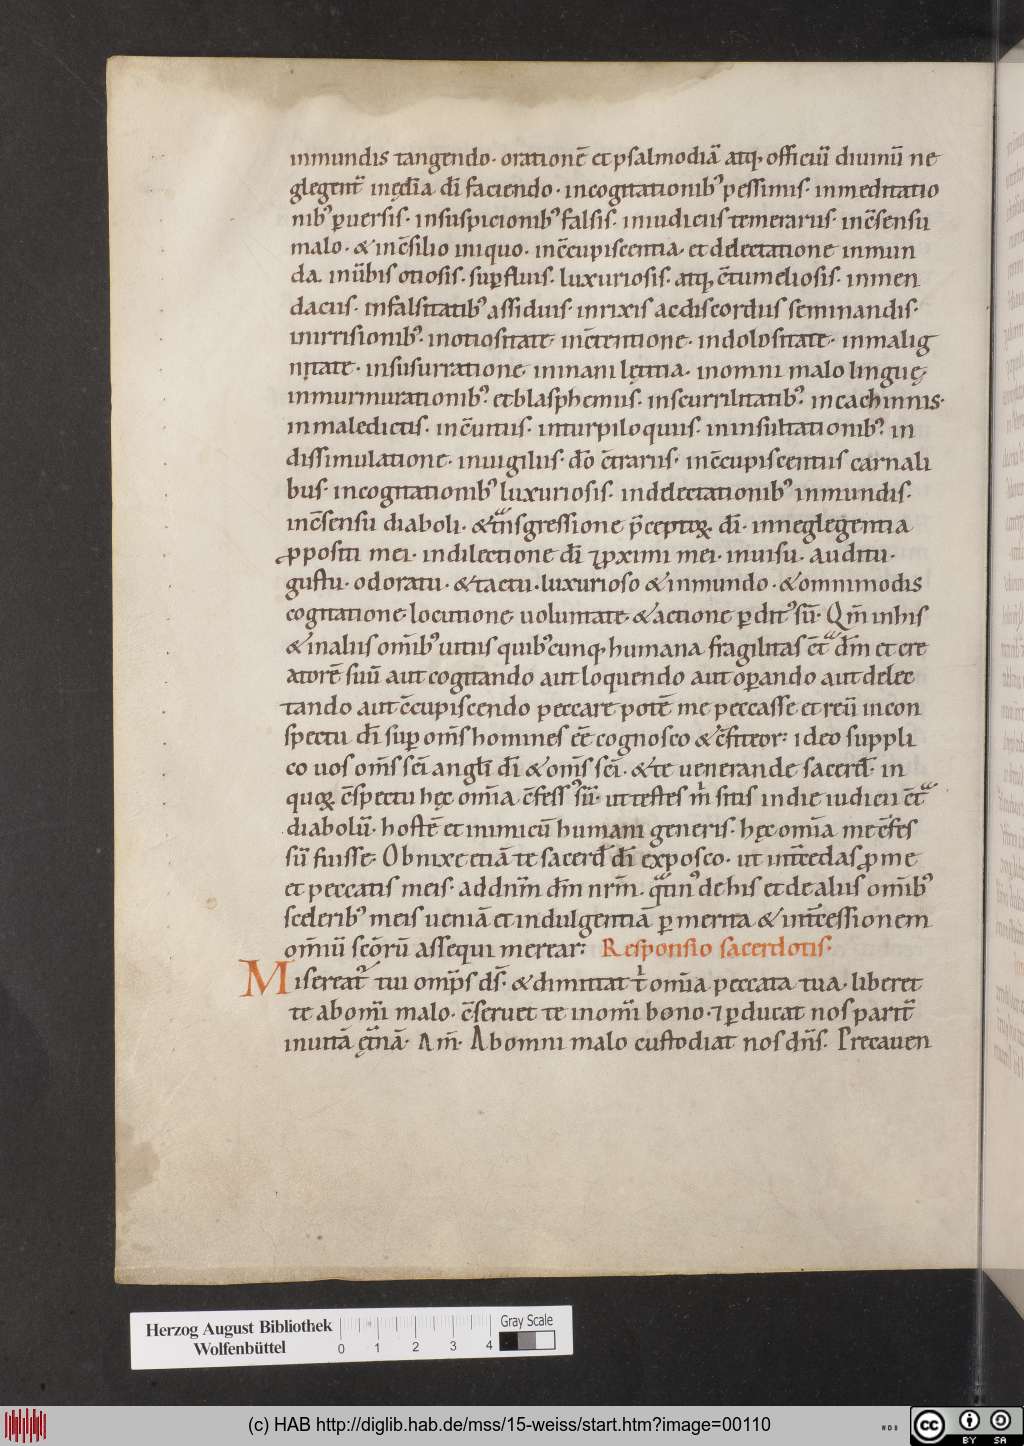 inmundis tangendo· orationē et psalmodiā atq; officiū diuinū ne
glegent̄ inędia dī faciendo· incogitationibꝰ pessimis· inmeditatio
nibꝰ ꝑuersis· insuspicionibꝰ falsis· iniudiciis temerariis· incs̄ensu
malo· & incs̄ilio iniquo· incc̄upiscentia· et delectatione inmun
da. inūbis otiosis· suꝑfluis· luxuriosis· atq; ct̄umeliosis· inmen
daciis· infalsitatibꝰ assiduis· inrixis acdiscordiis seminandis·
inirrisionibꝰ· inotiositate· inct̄entione· indolositate· inmalig
nitate· insusurratione· ininani lętitia· inomni malo linguę·
inmurmurationibꝰ· etblasphemiis· inscurrilitatibꝰ· incachinnis·
inmaledictis· incūitiis· inturpiloquiis· ininsultationibꝰ· in
dissimulatione· inuigiliis· dō ct̄rariis· incc̄upiscentiis carnali
bus· incogitationibꝰ luxuriosis· indelectationibꝰ inmundis·
incs̄ensu diaboli· & tn̄sgressione p̄ceptoꝝ dī· inneglegentia
ꝓpositi mei· indilectione dī ⁊ ꝓximi mei· inuisu· auditu·
gustu· odoratu· & tactu· luxurioso & inmundo· & omnimodis
cogitatione· locutione· uoluntate· & actione ꝑditꝰ sū· Qm̄ inhis
& inaliis om̄ibꝰ uitiis quibꝰcunq; humana fragilitas ct̄ dm̄ et cre
atorē suū aut cogitando aut loquendo aut oꝑando aut delec
tando aut cc̄upiscendo peccare potē me peccasse et reū incon
spectu dī suꝑ om̄s homines eē cognosco & cf̄iteor: ideo suppli
co uos om̄s scī angl̄i dī & om̄s scī· & te uenerande sacerd̄· in
quoꝝ cs̄pectu hęc om̄ia cf̄essꝰ sū· ut testes m̄ sitis indie iudicii ct̄
diabolū· hostē et inimicū humani generis· hęc om̄ia me cf̄es
sū fuisse· Obnixe etiā te sacerd̄ dī exposco· ut int̄cedas ꝓ me
et peccatis meis· addnm̄ dm̄ nrm̄· qt̄inꝰ dehis et dealiis om̄ibꝰ
sceleribꝰ meis ueniā et indulgentiā ꝑ merita & int̄cessionem
om̄iū scōrū assequi merear: Responsio sacerdotis·
Misereat̄ tui omp̄s ds̄· & dimittat t̄ om̄ia peccata tua· liberet
te abomī malo· cs̄eruet te inomī bono· ⁊ ꝑducat nos parit̄
inuitā ęt̄nā· Am̄· Abomni malo custodiat nos dn̄s· Precauen
Herzog August Bibliothek
Wolfenbüttel
0 1 2 3 4
Gray Scale
(c) HAB http://diglib.hab.de/mss/15-weiss/start.htm?image=00110
WDB
cc BY SA